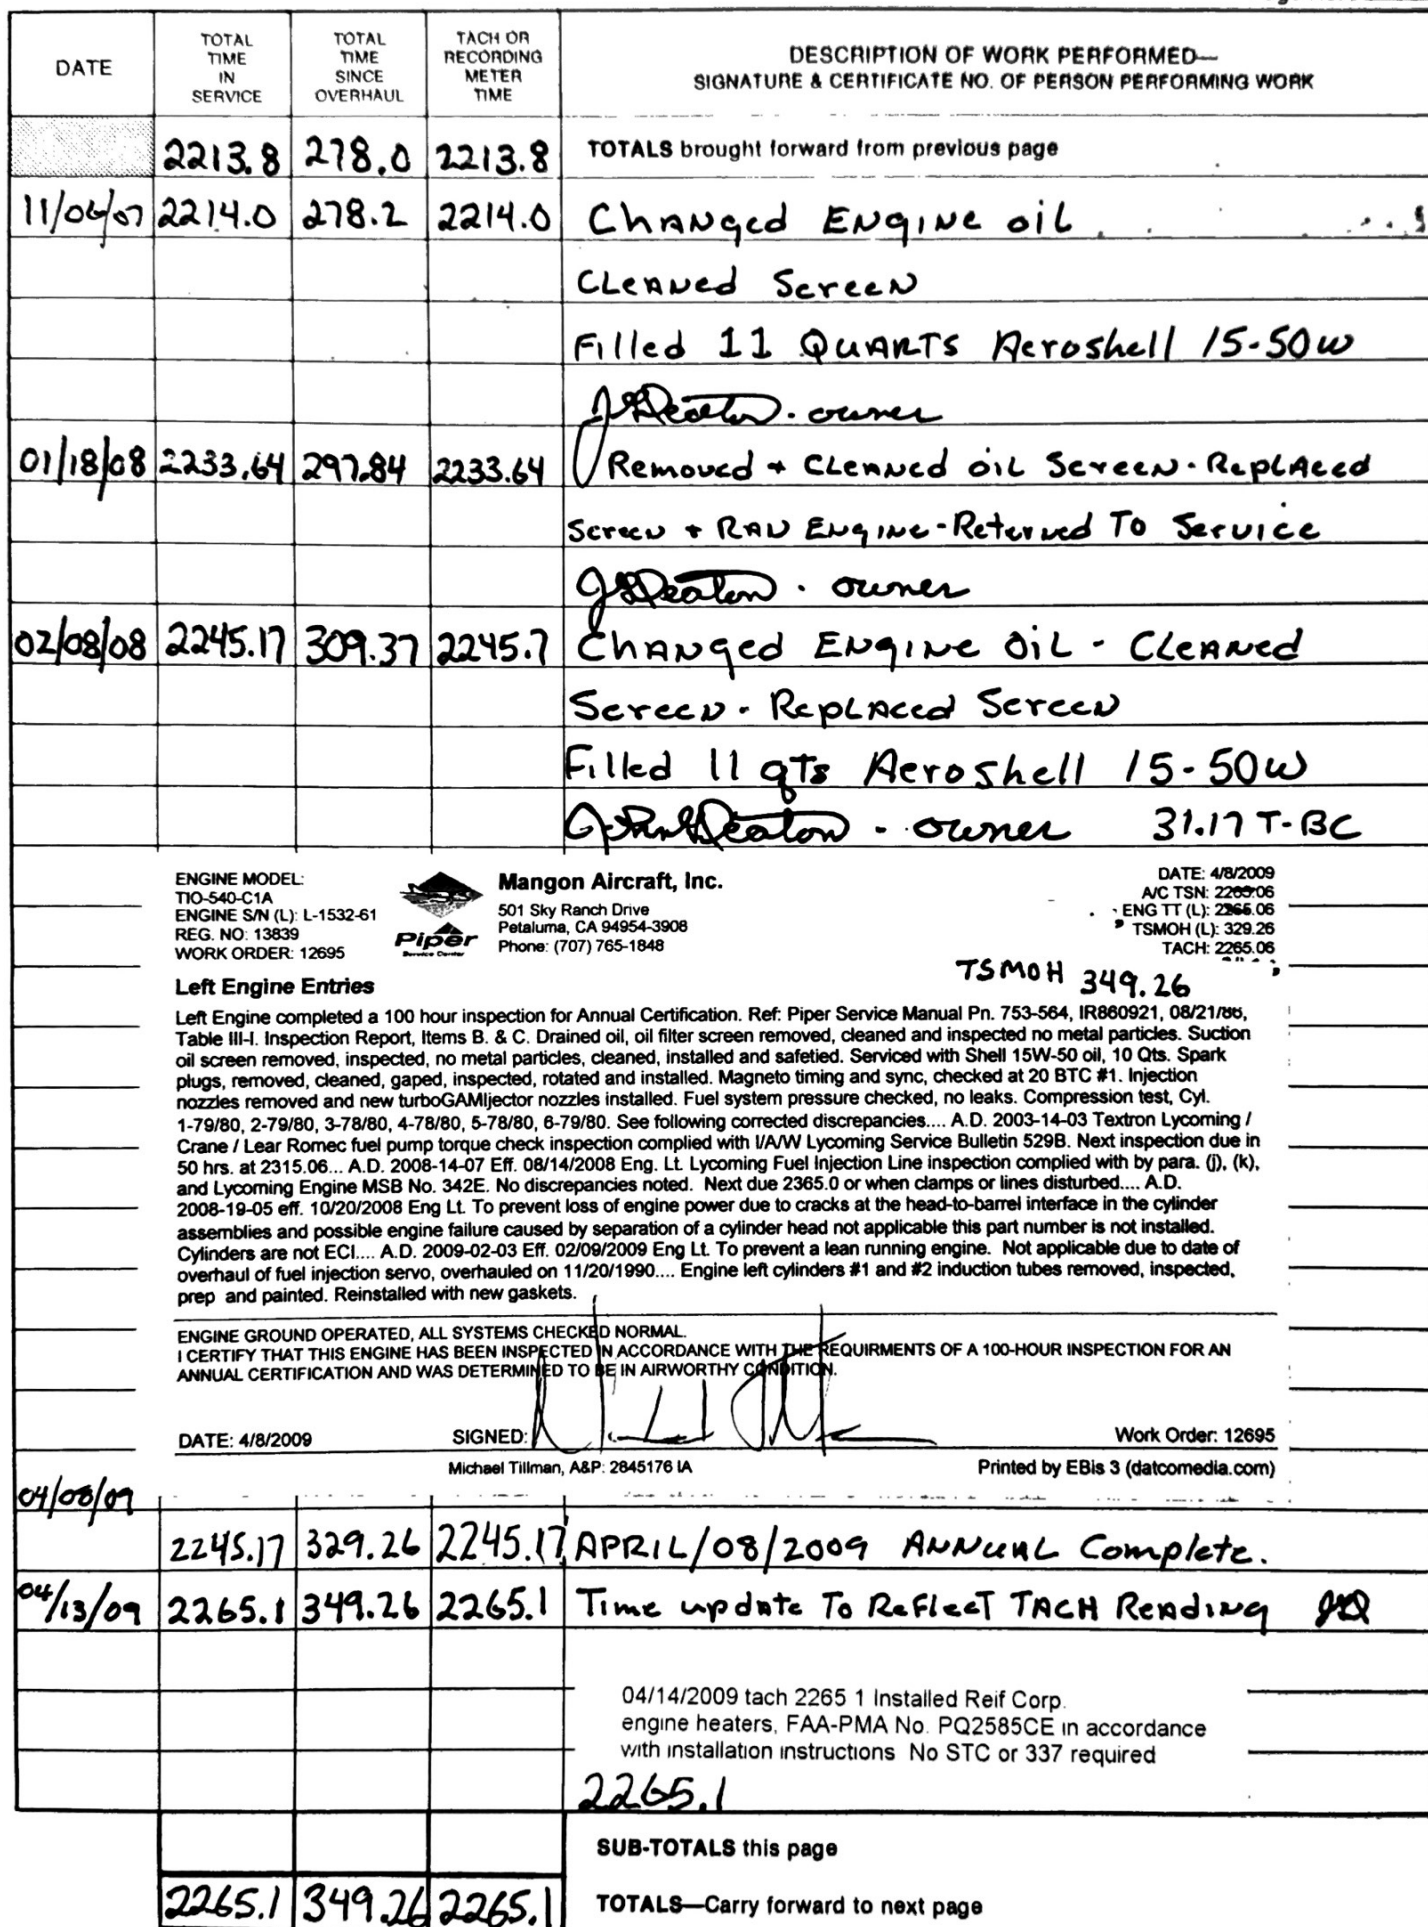 DATE
TOTAL TIME IN SERVICE
TOTAL TIME SINCE OVERHAUL
TACH OR RECORDING METER TIME
DESCRIPTION OF WORK PERFORMED—
SIGNATURE & CERTIFICATE NO. OF PERSON PERFORMING WORK
2213.8 278.0 2213.8 TOTALS brought forward from previous page
11/06/07 2214.0 278.2 2214.0 Changed Engine oil
Cleaned Screen
Filled 11 Quarts Aeroshell 15-50w
JGDeaton - owner
01/18/08 2233.64 297.84 2233.64 Removed + Cleaned oil Screen - Replaced
Screen + Ran Engine - Returned To Service
JGDeaton - owner
02/08/08 2245.17 309.37 2245.7 Changed Engine Oil - Cleaned
Screen - Replaced Screen
Filled 11 qts Aeroshell 15-50w
Deaton - owner 31.17 T-BC
ENGINE MODEL:
TIO-540-C1A
ENGINE S/N (L): L-1532-61
REG. NO: 13839
WORK ORDER: 12695
Piper
Service Center
Mangon Aircraft, Inc.
501 Sky Ranch Drive
Petaluma, CA 94954-3908
Phone: (707) 765-1848
DATE: 4/8/2009
A/C TSN: 2265.06
ENG TT (L): 2265.06
TSMOH (L): 329.26
TACH: 2265.06
TSMOH 349.26
Left Engine Entries
Left Engine completed a 100 hour inspection for Annual Certification. Ref: Piper Service Manual Pn. 753-564, IR860921, 08/21/86,
Table III-I. Inspection Report, Items B. & C. Drained oil, oil filter screen removed, cleaned and inspected no metal particles. Suction
oil screen removed, inspected, no metal particles, cleaned, installed and safetied. Serviced with Shell 15W-50 oil, 10 Qts. Spark
plugs, removed, cleaned, gaped, inspected, rotated and installed. Magneto timing and sync, checked at 20 BTC #1. Injection
nozzles removed and new turboGAMIjector nozzles installed. Fuel system pressure checked, no leaks. Compression test, Cyl.
1-79/80, 2-79/80, 3-78/80, 4-78/80, 5-78/80, 6-79/80. See following corrected discrepancies.... A.D. 2003-14-03 Textron Lycoming /
Crane / Lear Romec fuel pump torque check inspection complied with I/A/W Lycoming Service Bulletin 529B. Next inspection due in
50 hrs. at 2315.06... A.D. 2008-14-07 Eff. 08/14/2008 Eng. Lt. Lycoming Fuel Injection Line inspection complied with by para. (j), (k),
and Lycoming Engine MSB No. 342E. No discrepancies noted. Next due 2365.0 or when clamps or lines disturbed.... A.D.
2008-19-05 eff. 10/20/2008 Eng Lt. To prevent loss of engine power due to cracks at the head-to-barrel interface in the cylinder
assemblies and possible engine failure caused by separation of a cylinder head not applicable this part number is not installed.
Cylinders are not ECI.... A.D. 2009-02-03 Eff. 02/09/2009 Eng Lt. To prevent a lean running engine. Not applicable due to date of
overhaul of fuel injection servo, overhauled on 11/20/1990.... Engine left cylinders #1 and #2 induction tubes removed, inspected,
prep and painted. Reinstalled with new gaskets.
ENGINE GROUND OPERATED, ALL SYSTEMS CHECKED NORMAL.
I CERTIFY THAT THIS ENGINE HAS BEEN INSPECTED IN ACCORDANCE WITH THE REQUIRMENTS OF A 100-HOUR INSPECTION FOR AN
ANNUAL CERTIFICATION AND WAS DETERMINED TO BE IN AIRWORTHY CONDITION.
DATE: 4/8/2009 SIGNED: Work Order: 12695
Michael Tillman, A&P: 2845176 IA Printed by EBis 3 (datcomedia.com)
04/08/09
2245.17 329.26 2245.17 APRIL/08/2009 Annual Complete.
04/13/09 2265.1 349.26 2265.1 Time update To Reflect TACH Reading JGD
04/14/2009 tach 2265 1 Installed Reif Corp.
engine heaters, FAA-PMA No. PQ2585CE in accordance
with installation instructions No STC or 337 required
2265.1
SUB-TOTALS this page
2265.1 349.26 2265.1 TOTALS—Carry forward to next page